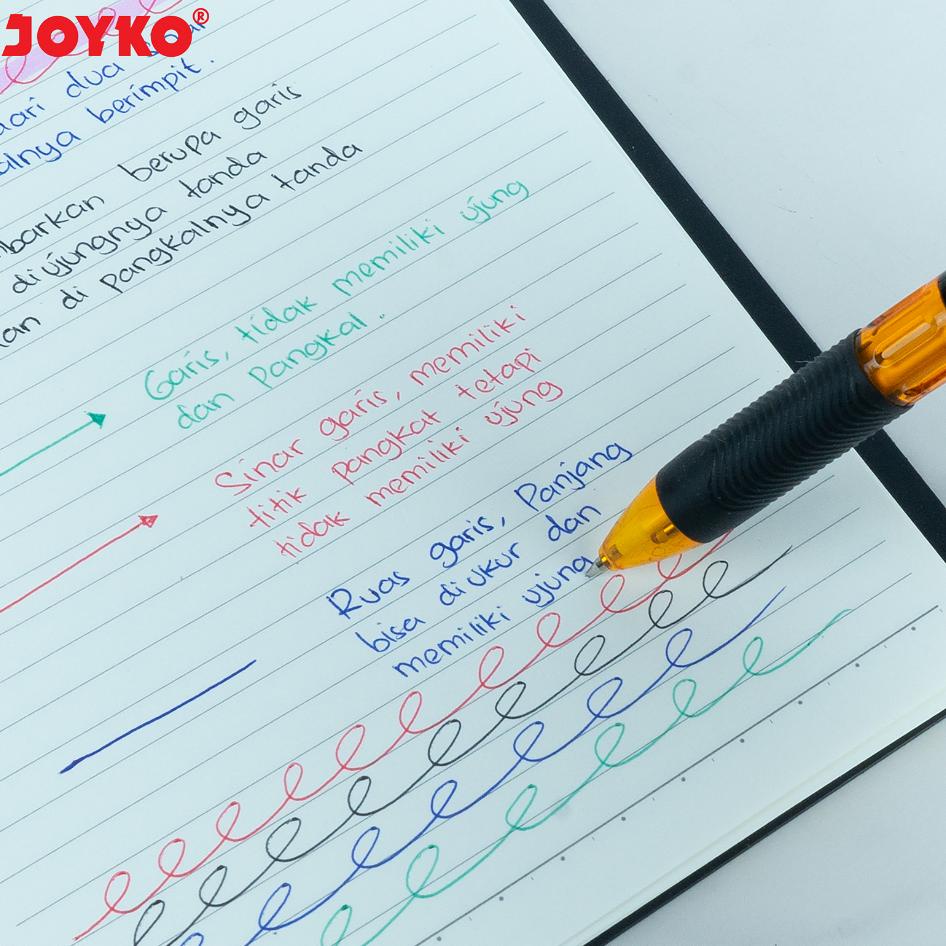 JOYKO®
dari dua
alnya berimpit.
barkan berupa garis
diujungnya tanda
an di pangkalnya tanda
Garis, tidak memiliki ujung
dan Pangkal.
Sinar garis, memiliki
titik pangkat tetapi
tidak memiliki ujung
Ruas garis, Panjang
bisa diukur dan
memiliki ujung